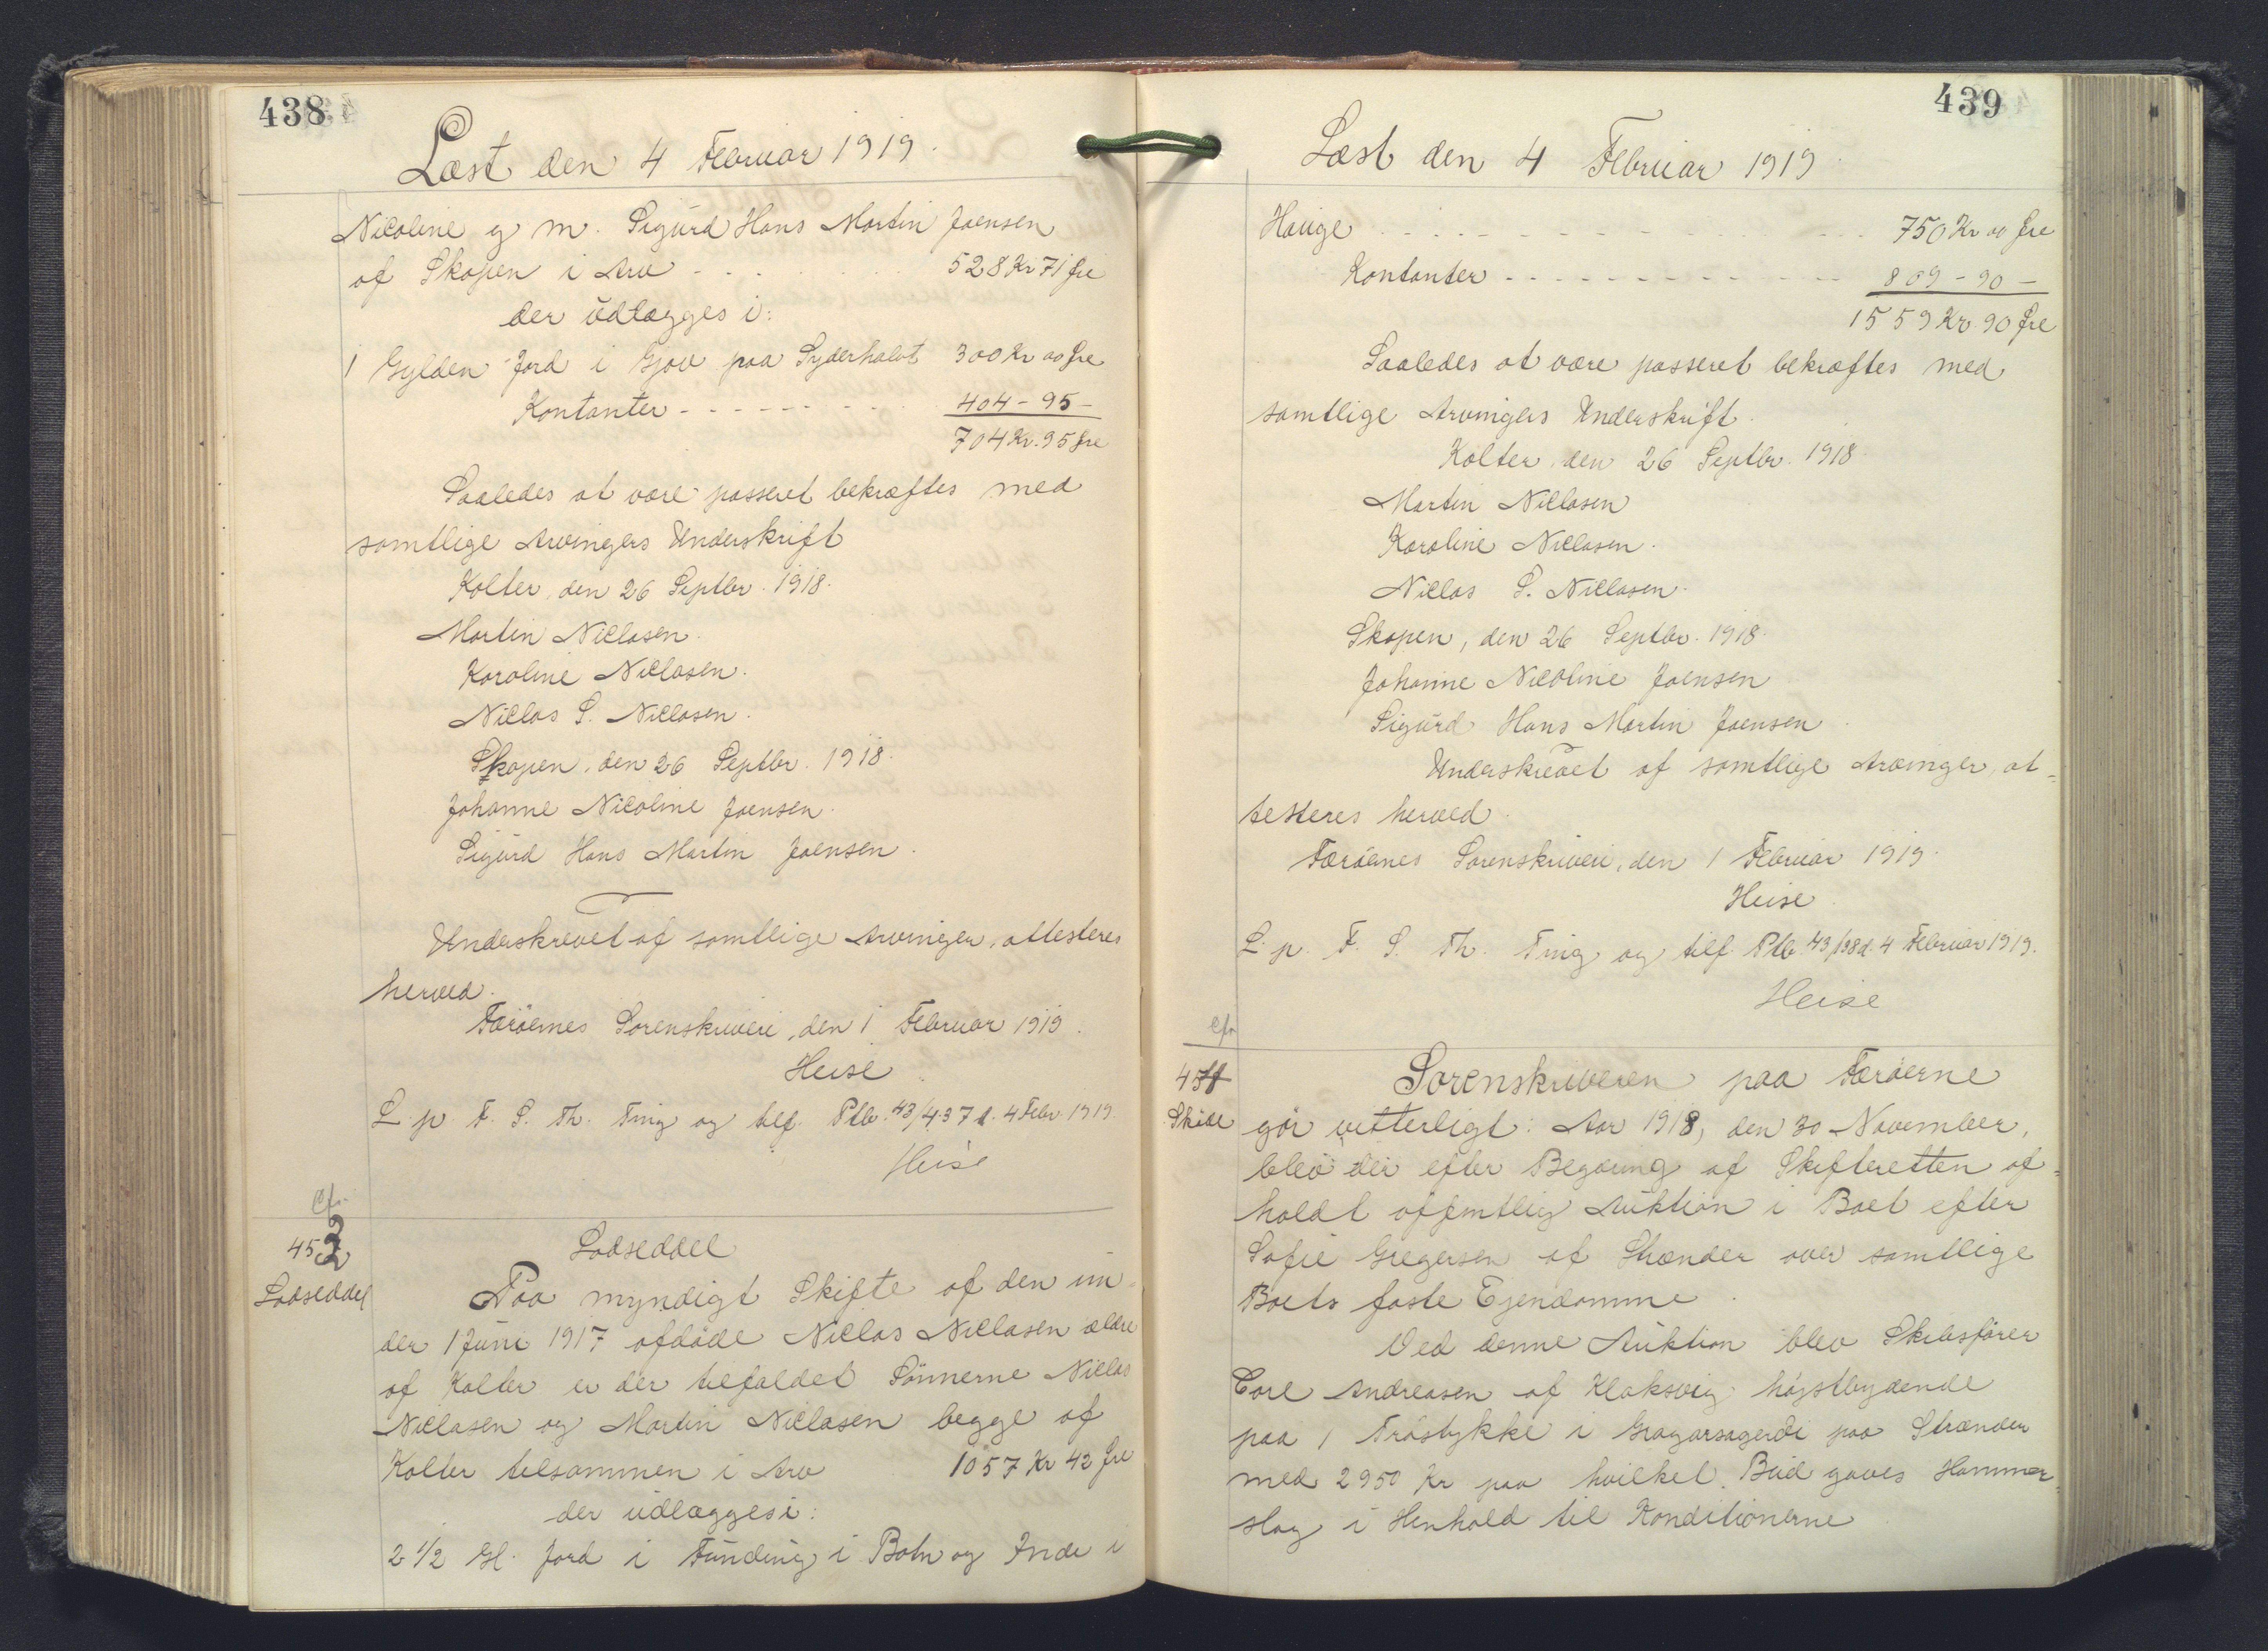 438
Læst den 4 Februar 1919.
Nicoline g m. Sigurd Hans Martin Joensen
af Skopen i Arv - . . . . . 528 Kr 71 Øre
der udlægges i:
1 Gylden Jord i Gjov paa Syderhalvt 300 Kr 00 Øre
Kontanter - - - - - - - 404 - 95 -
704 Kr. 95 Øre
Saaledes at være passeret bekræftes med
samtlige Arvingers Underskrift
Kolter, den 26 Septbr. 1918.
Martin Niclasen.
Karoline Niclasen.
Niclas S. Niclasen.
Skopen, den 26 Septbr. 1918.
Johanne Nicoline Joensen.
Sigurd Hans Martin Joensen.
Underskrevet af samtlige Arvinger, attesteres
herved.
Færøernes Sorenskriveri, den 1 Februar 1919.
Heise
L. p. F. S. Th. Ting og tilf. Ptb. 43/437 d. 4 Febr. 1919
Heise
Cfr.
453
Lodseddel
Lodseddel
Paa myndigt Skifte af den un-
der 1 Juni 1917 afdøde Niclas Niclasen ældre
af Kolter er der tilfaldet Sønnerne Niclas
Niclasen og Martin Niclasen begge af
Kolter tilsammen i Arv 1057 Kr 42 Øre
der udlægges i:
2 1/2 Gl. Jord i Funding i Botn og Inde i
439
Læst den 4 Februar 1919.
Hauge . - . - - - - - - - - - 750 Kr 00 Øre
Kontanter - - - - - - - - - - - 809 - 90 -
1559 Kr. 90 Øre
Saaledes at være passeret bekræftes med
samtlige Arvingers Underskrift.
Kolter, den 26 Septbr. 1918
Martin Niclasen
Karoline Niclasen.
Niclas S. Niclasen.
Skopen, den 26 Septbr. 1918.
Johanne Nicoline Joensen
Sigurd Hans Martin Joensen.
Underskrevet af samtlige Arvinger, at-
testeres herved.
Færøernes Sorenskriveri, den 1 Februar 1919.
Heise.
L. p. F. S. Th. Ting og tilf. Ptb. 43/198 d. 4 Februar 1919.
Heise
Cfr
454
Skøde
Sorenskriveren paa Færøerne
gör vitterligt: Aar 1918, den 30 November,
blev der efter Begæring af Skifteretten af-
holdt offentlig Auktion i Boet efter
Sofie Gregersen af Strænder over samtlige
Boets faste Ejendomme.
Ved denne Auktion blev Skibsfører
Tore Andreasen af Klaksvig højstbydende
paa 1 Trøstykke i Gragarsagerdi paa Strænder
med 2950 Kr paa hvilket Bud gaves Hammer-
slag i Henhold til Konditionerne